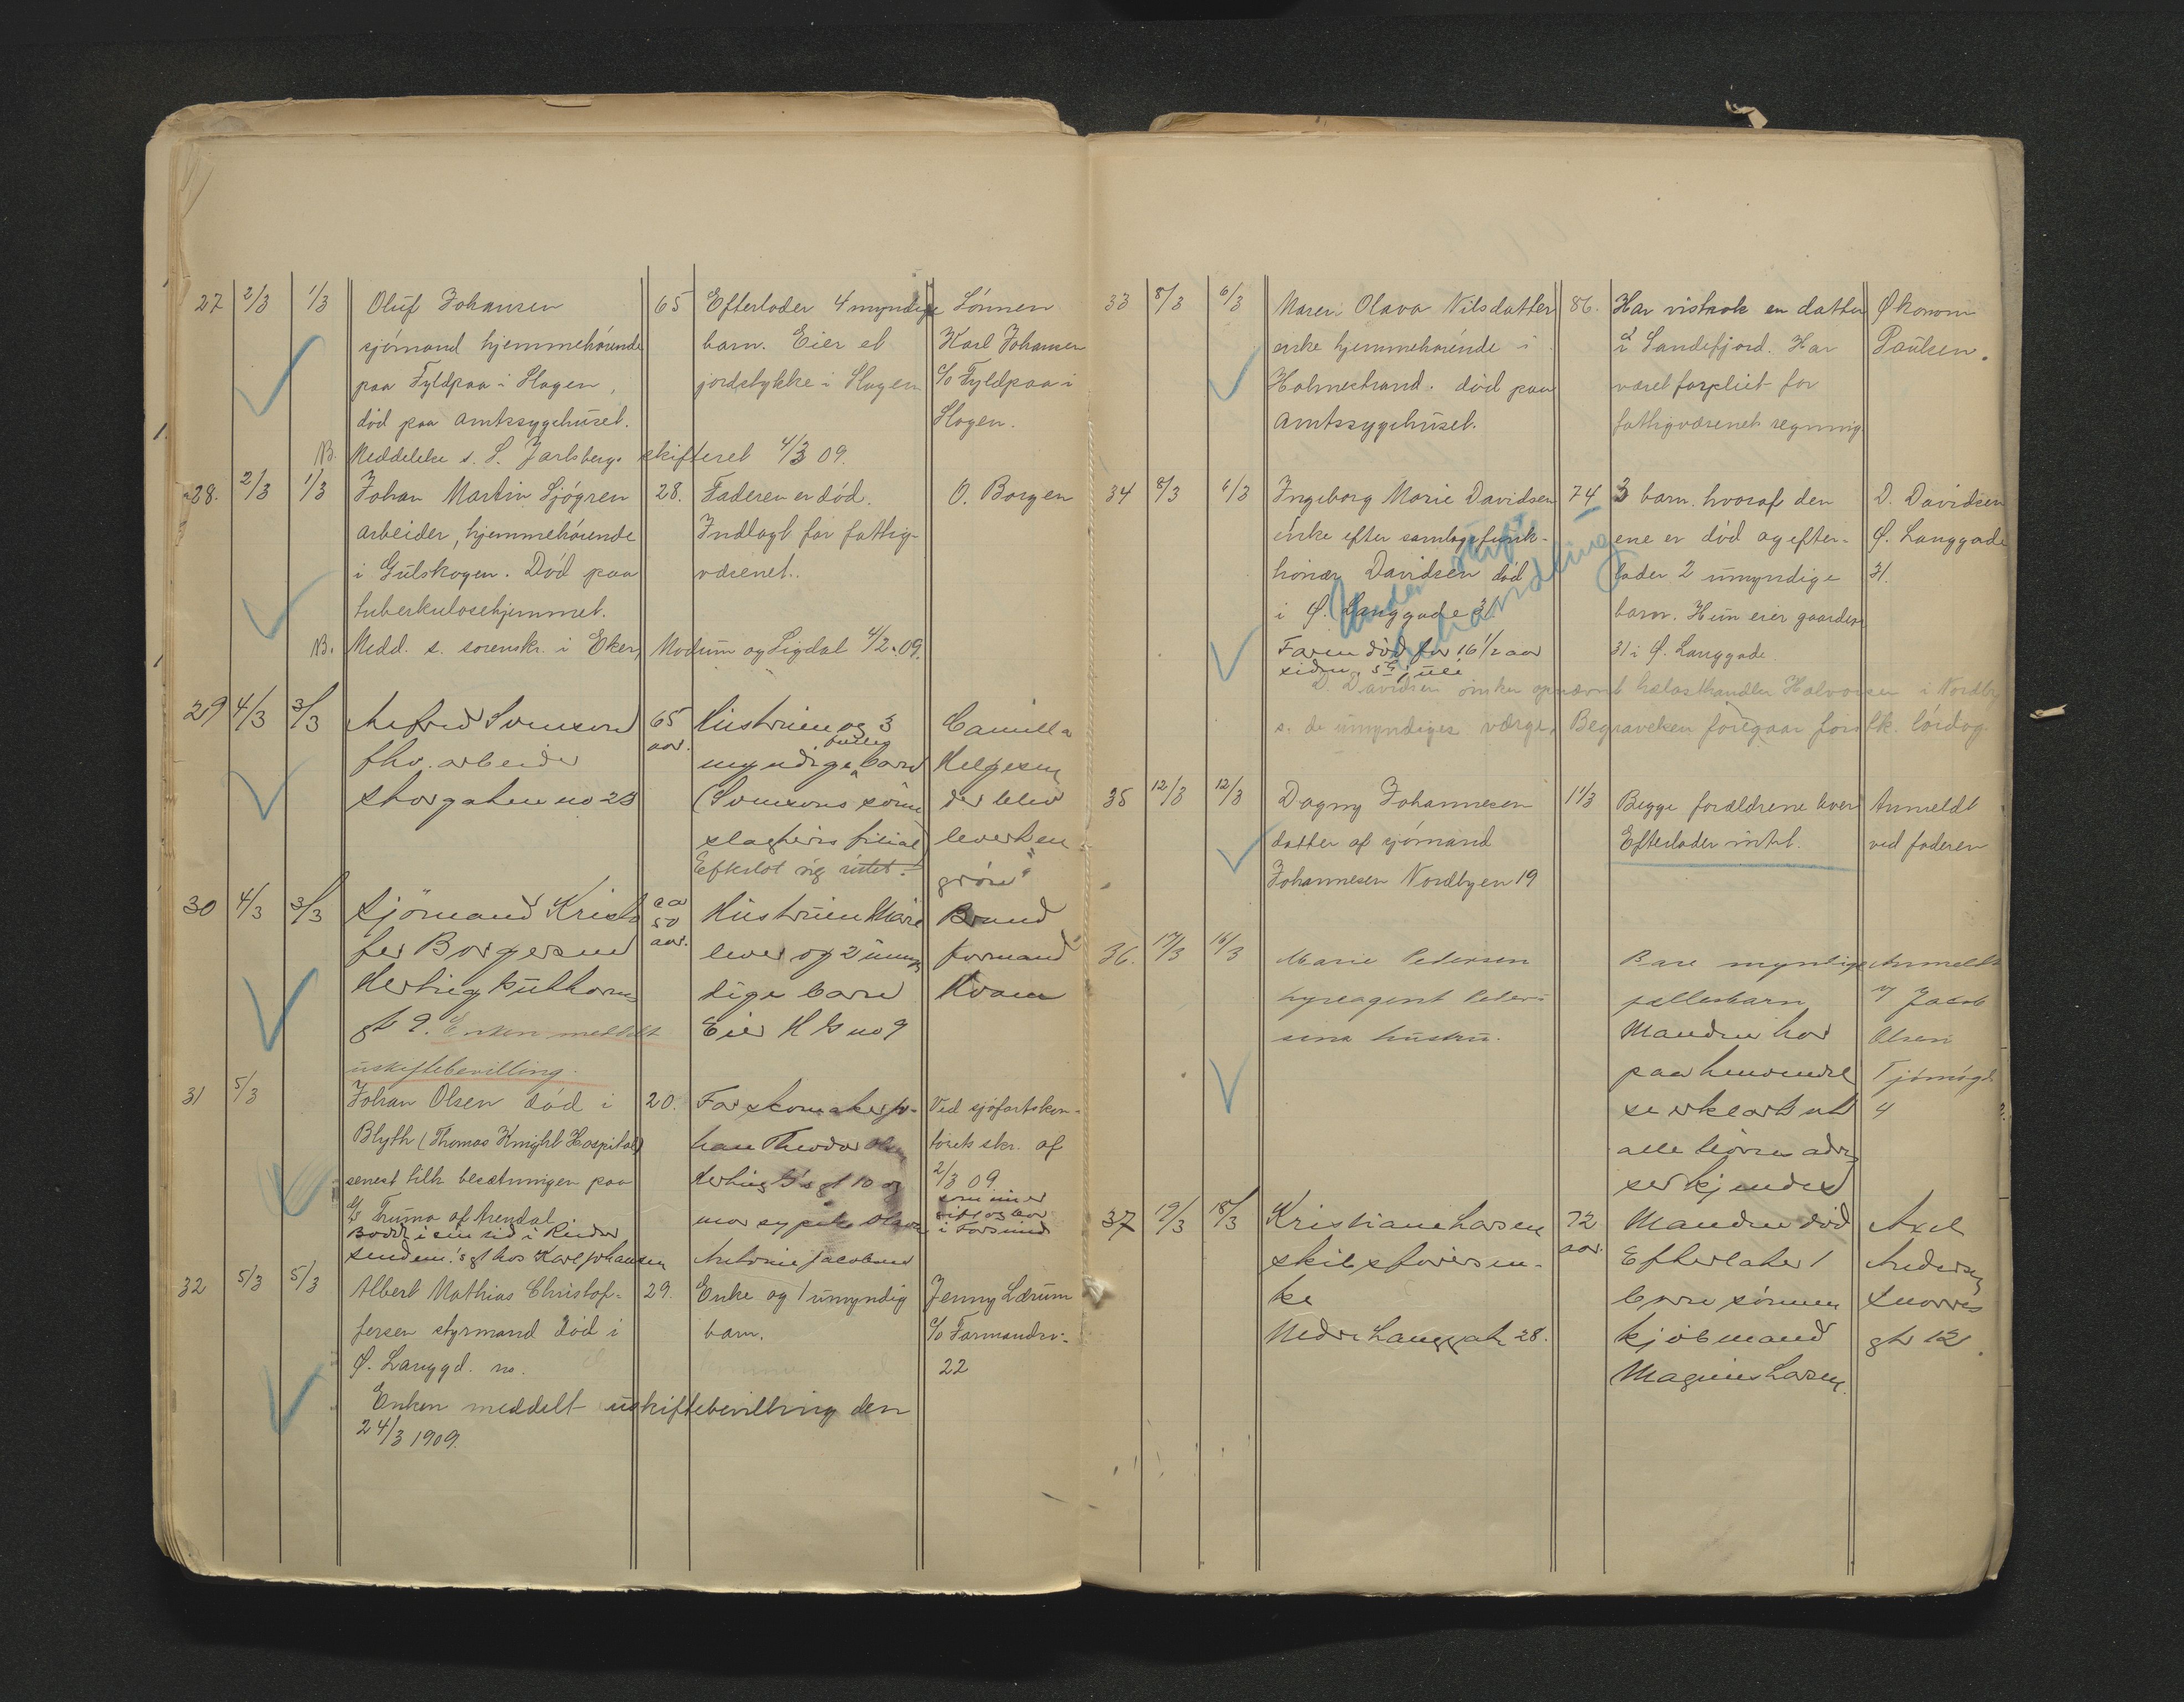 27 2/3 1/3 Oluf Johansen 65 Efterlader 4 myndige Sønnen
sjømand hjemmehørende barn. Eier et Karl Johansen
paa Fyldpaa i Slagen, jordstykke i Slagen c/o Fyldpaa i
død paa amtssygehuset. Slagen.
NB. Meddelelse s. S. Jarlsbergs skifteret 4/3 09.
28. 2/3 1/3 Johan Martin Sjøgren 28. Faderen er død. O. Borgen
arbeider, hjemmehørende Indlagt for fattig-
i Gulskogen. Død paa væsenet.
tuberkulosehjemmet.
NB. Medd. s. sorenskr. i Eker, Modum og Sigdal 4/2. 09.
29 4/3 3/3 Alfred Svenson 65 aar. Hustruen og 3 Camilla
fhv. arbeider myndige barn Helgesen
Storgaten no 23 (Svensons sønn der blev
slagteris filial)
Efterlot sig intet.
30 4/3 3/3 Sjömand Kristo ca 50 aar. Hustruen Marie Brand
fer Borgersen lever og 2 umyn formand
Hertug Guthorms dige barn Kvam
gt 9. Enken meddelt Eier H G no 9
uskiftebevilling.
31 5/3 Johan Olsen død i 20. Far skomaker Jo- Ved sjøfartskon-
Blyth (Thomas Knight Hospital) han Theodor Olsen torets skr. af
senest tilh besætningen paa Hertug G's gt 10 og 2/3 09.
Truma af Arendal mor
Bodde i sin tid i
hos Karl Johansen Antonie Jacobsen
32 5/3 5/3 Albert Mathias Christof- 29. Enke og 1 umyndig Jenny Lærum
fersen styrmand død i barn. c/o Farmandsv.
Ø. Langgd. no. 22
Enken meddelt uskiftebevilling den
24/3 1909.
33 8/3 6/3 Maren Olava Nilsdatter 86. Har vistnok en datter Økonom
enke hjemmehørende i i Sandefjord. Har Paulsen.
Holmestrand. død paa været forpleiet for
Amtssygehuset. fattigvæsenets regning.
34 8/3 6/3 Ingeborg Marie Davidsen 74 3 barn. hvoraf den D. Davidsen
enke efter samlagsfunk- ene er død og efter- Ø. Langgade
tionær Davidsen død lader 2 umyndige 31.
i Ø. Langgade 31. barn. Hun eier gaarden
Faren død for 16 1/2 aar 31 i Ø. Langgade.
siden, 5te juli
Under skifte
behandling
D. Davidsen ønsker opnævnt Halvorsen i Nordby
s. de umyndiges værge. Begravelsen foregaar førstk. lørdag.
35 12/3 12/3 Dagny Johannesen 11/3 Begge forældrene lever Anmeldt
datter af sjømand Efterlader intet. ved faderen
Johannesen Nordbyen 19
36. 17/3 16/3 Marie Pedersen Bare myndige Anmeldt
hyreagent Peder fellesbarn v/ Jacob
sens hustru. Manden har Olsen
paa henvendel Tjømøgt
se erklært at 4
alle
37 19/3 18/3 Kristiane Larsen 72 aar. Manden død Axel
skibsførersen- Efterlater 1 Andersen
ke barn sønnen Snorres
Nedre Langgate 28. kjøbmand gt 12
Magnus Larsen.